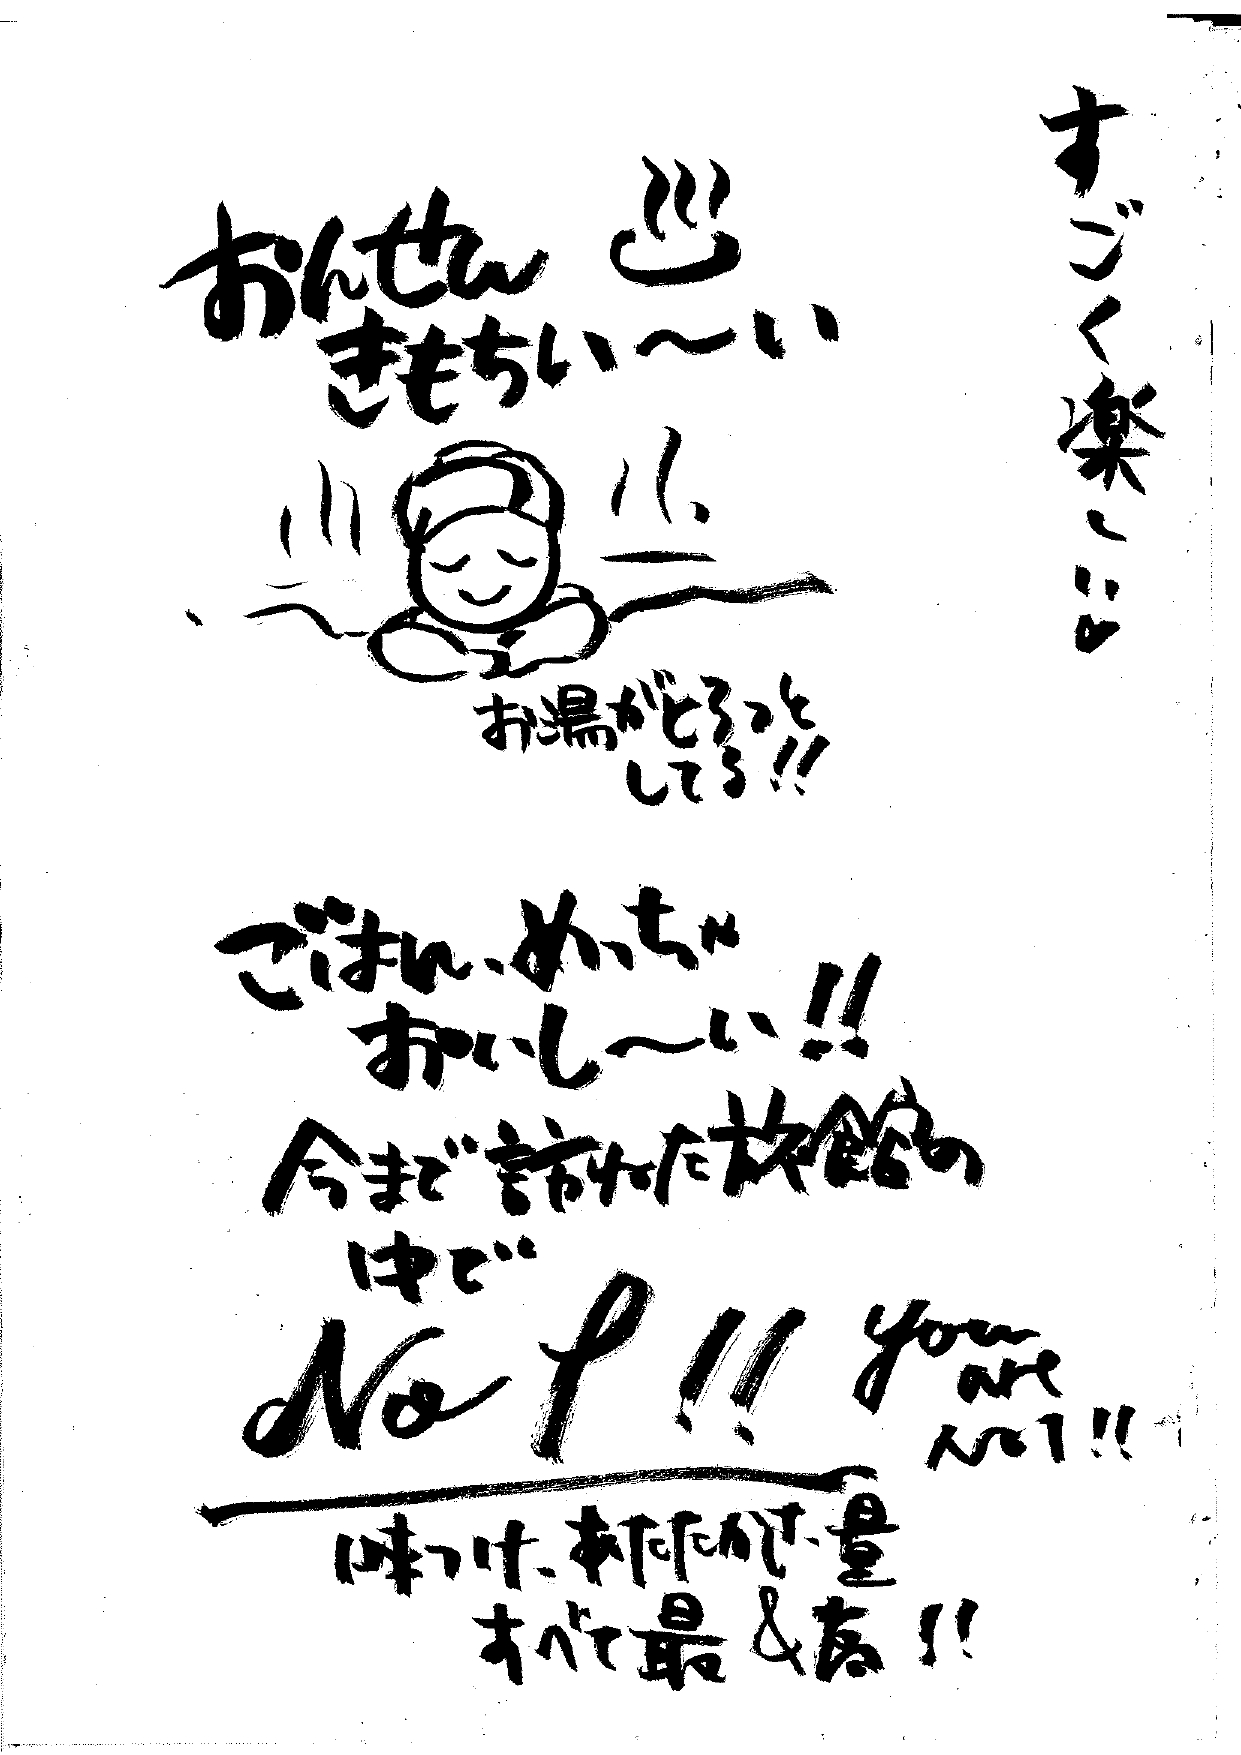 すごく楽しい!!
おんせん♨
きもちい〜い
お湯がとろっと
してる!!
ごはん、めっちゃ
おいし〜い!!
今まで訪れた旅館の
中で
No1!!
you
are
No1!!
味つけ、あたたかさ、量
すべて最&高!!